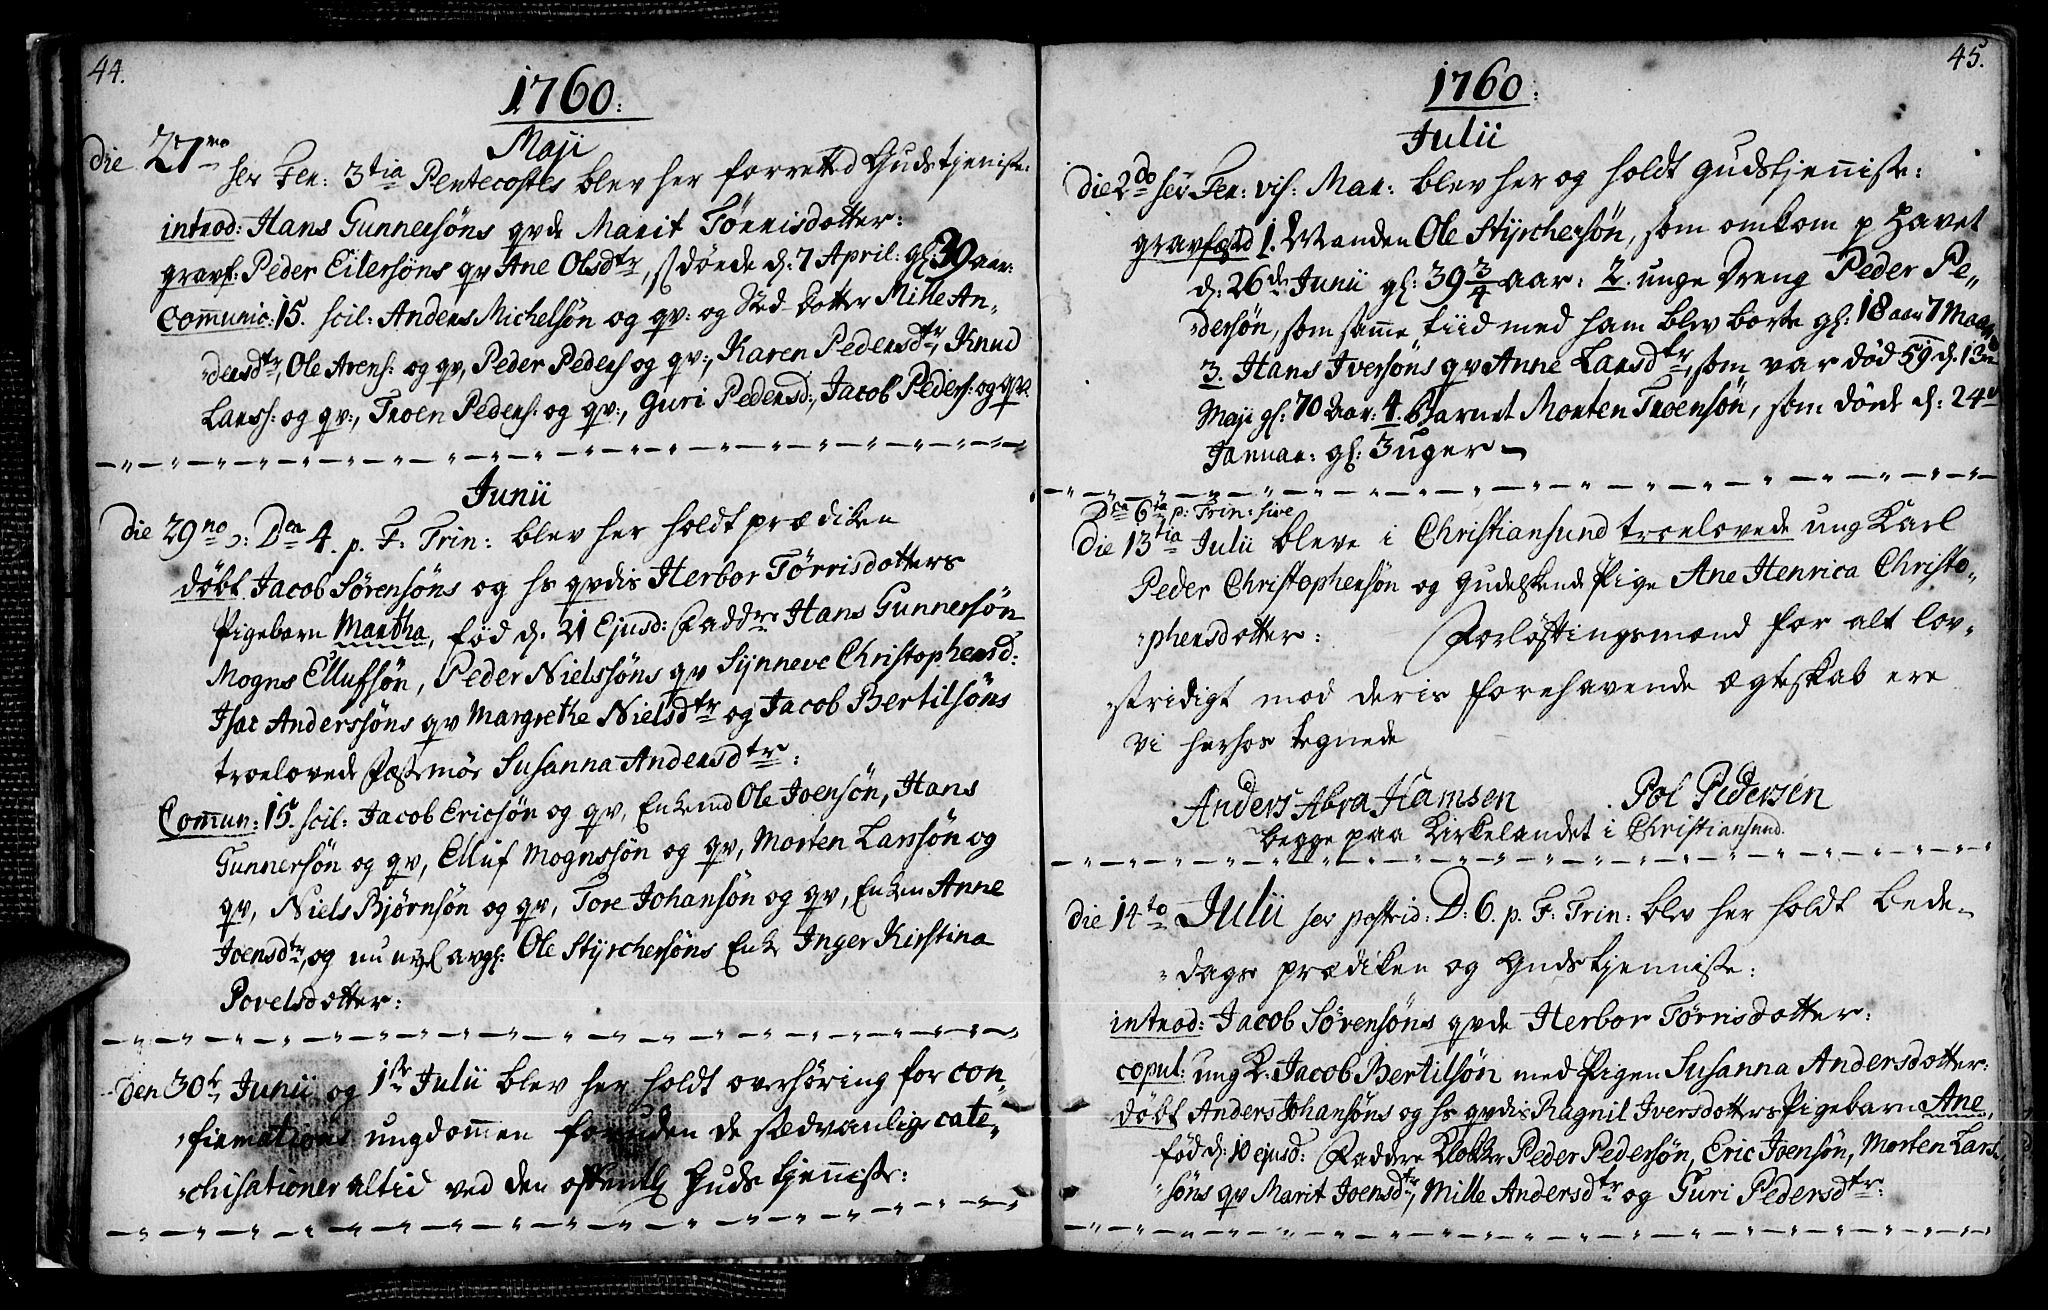 44.
1760:
Maji
die 27mo ser Fer: 3tia Pentecostes blev her forretted Gudstjeniste:
introd: Hans Gunnersöns qvde Marit Tørrisdotter:
gravf: Peder Eilersöns qv Ane Olsdtr, døde d: 7 April: gl: 39 aar:
Communic: 15. scil: Anders Michelsön og qv: og Sted-Dotter Mille An-
dersdtr, Ole Arens: og qv, Peder Peders og qv:, Karen Pedersdtr, Knud
Larss: og qv:, Troen Peders: og qv:, Guri Pedersd:, Jacob Peders: og qv:
Junii
die 29no ɔ: Dca 4. p. F: Trin: blev her holdt prædiken
döbt Jacob Sörensöns og hs qvdis Herbor Tørrisdotters
Pigebarn Martha, fød d. 21 Ejusd: Faddre Hans Gunnersön
Mogns Ellufsön, Peder Nielssöns qv Synneve Christophersd:
Isac Anderssöns qv Margrethe Nielsdtr og Jacob Bertilsöns
troelovede Fæstemøe Susanna Andersdtr:
Commun: 15. scil: Jacob Ericsön og qv, Enkemd Ole Joensön, Hans
Gunnersön og qv, Elluf Mognssön og qv, Morten Larssön og
qv, Niels Bjørnsön og qv, Tore Johansön og qv, Enken Anne
Joensdtr, og nu avgl: Ole Styrchersöns Enke Inger Kirstina
Povelsdotter:
den 30te Junii og 1ste Julii blev her holdt overhøring for con-
firmations ungdommen foruden de sedvanlige cate-
chisationer altid ved den offentl Gudstjenniste:
45.
1760:
Julii
die 2do ser Fer: vis: Mar: blev her og holdt gudstjenniste:
gravfæstd 1. Manden Ole Styrchersön, som omkom p Havet
d: 26de Junii gl: 39 3/4 aar: 2. unge Dreng Peder Pe-
dersön, som samme tiid med ham blev borte gl: 18 aar 7 Maan
3. Hans Iversöns qv Anne Larsdtr, som var död d. 13
Maji gl: 70 Aar: 4. Barnet Morten Troensön, som döde d: 24
Januar: gl: 3 uger
Dca 6ta p: Trin: sive
die 13tia Julii bleve i Christiansund troelovede ung Karl
Peder Christophersön og Gudelskende Pige Ane Henrica Christo-
phersdotter: Forløftingsmænd for alt lov-
stridigt mod deris forehavende Ægteskab ere
vi herhos tegnede
Anders AbraHamsen Pol Pedersen
begge paa Kirkelandet i Christiansund.
die 14to Julii ser postrid: D: 6. p. F: Trin: blev her holdt Bede-
dags prædiken og Gudstjenniste:
introd: Jacob Sörensöns qvde Herbor Tørrisdotter:
copul: ung K. Jacob Bertilsön med Pigen Susanna Andersdotter:
döbt Anders Johansöns og hs qvdis Ragnil Iversdotters Pigebarn Ane,
fød d: 10 ejusd: Faddre Klokker Peder Pedersön, Eric Joensön, Morten Lars-
söns qv Marit Joensdtr, Mille Andersdtr og Guri Pedersdtr: